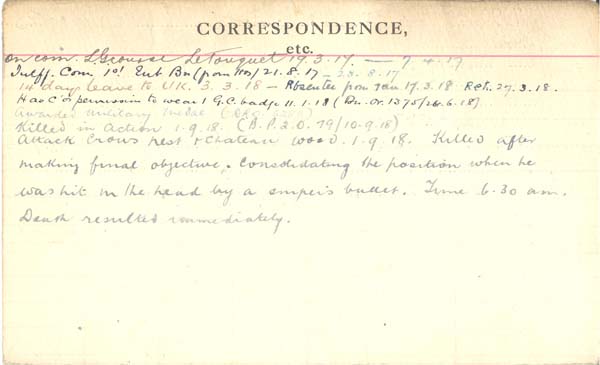 CORRESPONDENCE,
etc.
on com. Le Touquet 19.3.17. — 7.4.17
Com 1st Ent Bn (from 21.8.17 — 23.8.17
14 days leave to U.K. 3.3.18 — Absentee from 17.3.18 Ret. 27.3.18.
Has C.O's permission to wear 1 G.C. badge 11.1.18 (Bn. Or. 1375/26.6.18)
Awarded Military Medal
Killed in Action 1.9.18. (B.P.2.O. 79/10.9.18)
Attack Crows nest & Chateau wood. 1.9.18. Killed after
making final objective. Consolidating the position when he
was hit in the head by a sniper's bullet. Time 6.30 am.
Death resulted immediately.